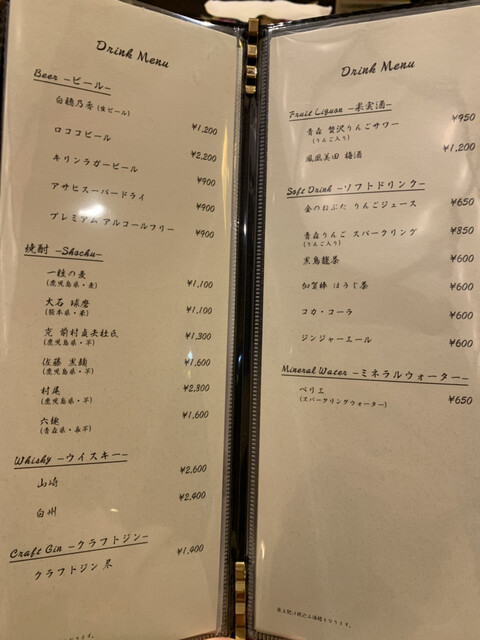 Drink Menu
Beer -ビール-
白穂乃香 (生ビール)
¥1,200
ロココビール
¥2,200
キリンラガービール
¥900
アサヒスーパードライ
¥900
プレミアム アルコールフリー
¥900
焼酎 -Shochu-
一粒の麦
(鹿児島県・麦)
¥1,100
大石 球磨
(熊本県・米)
¥1,100
(鹿児島県・芋)
¥1,300
佐藤 黒麹
(鹿児島県・芋)
¥1,600
村尾
(鹿児島県・芋)
¥2,800
六趣
(青森県・長芋)
¥1,600
Whisky -ウイスキー-
山崎
¥2,600
白州
¥2,400
Craft Gin -クラフトジン-
クラフトジン
¥1,400
Drink Menu
Fruit Liquor -果実酒-
青森 贅沢りんごサワー
(りんご入り)
¥950
鳳凰美田 梅酒
¥1,200
Soft Drink -ソフトドリンク-
金のねぶた りんごジュース
¥650
青森りんご スパークリング
(りんご入り)
¥850
黒烏龍茶
¥600
加賀棒 ほうじ茶
¥600
コカ・コーラ
¥600
ジンジャーエール
¥600
Mineral Water -ミネラルウォーター-
ペリエ
(スパークリングウォーター)
¥650